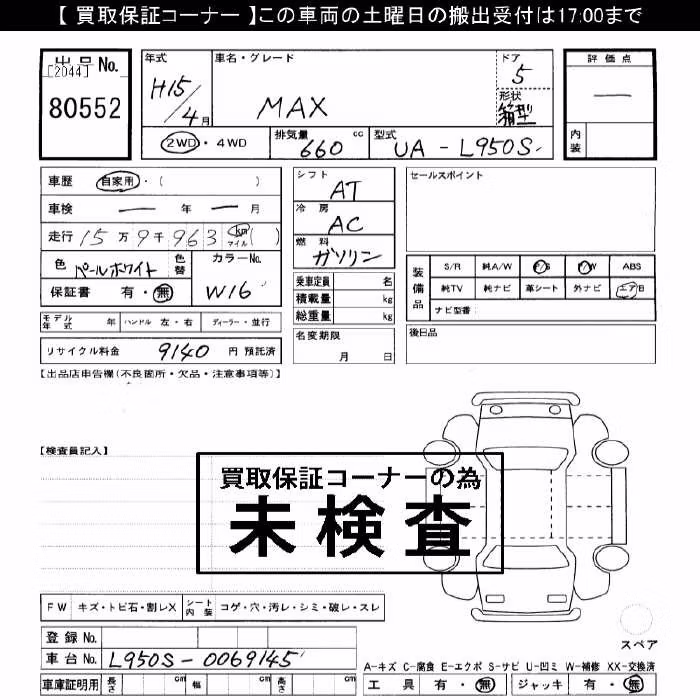 【 買取保証コーナー 】この車両の土曜日の搬出受付は17:00まで
出品No.
[2044]
80552
年式
H15/4月
車名・グレード
MAX
ドア
5
形状
箱型
評価点
—
内装
2WD・4WD
排気量
660 cc
型式
UA - L950S
車歴 自家用・( )
車検 — 年 — 月
走行 15万9千963 km マイル ( )
色 パールホワイト
色替
カラーNo.
W16
保証書 有・無
モデル年式 年 ハンドル 左・右 ディーラー・並行
リサイクル料金 9140 円 預託済
シフト
AT
冷房
AC
燃料
ガソリン
乗車定員 名
積載量 kg
総重量 kg
名変期限
月 日
セールスポイント
装備品
S/R 純A/W P/S P/W ABS
純TV 純ナビ 革シート 外ナビ エアB
ナビ型番
後日品
【出品店申告欄(不良箇所・欠品・注意事項等)】
【検査員記入】
買取保証コーナーの為
未検査
FW キズ・トビ石・割レX シート内装 コゲ・穴・汚レ・シミ・破レ・スレ
登録No.
車台No. L950S-0069145
車庫証明用 長さ cm 幅 cm 高さ cm
スペア
A-キズ C-腐食 E-エクボ S-サビ U-凹ミ W-補修 XX-交換済
工具 有・無 ジャッキ 有・無